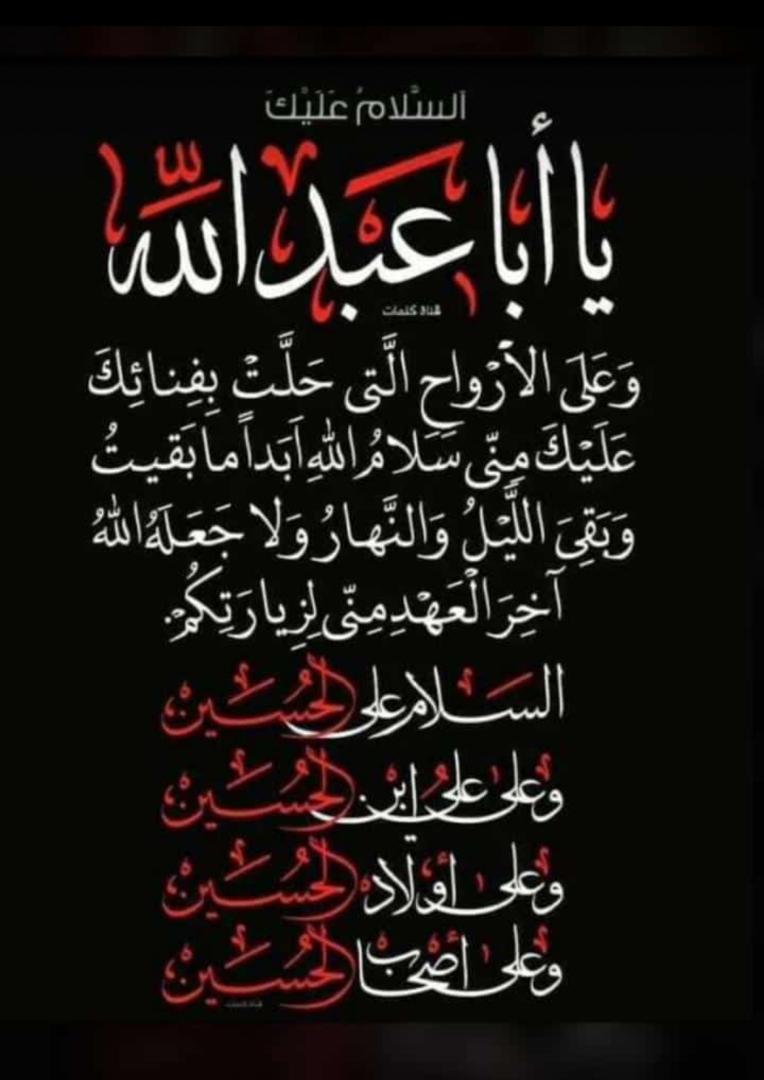 اَلسَّلامُ عَلَيْكَ
يا أبا عَبْدِ اللّٰهِ
قناة كلمات
وَعَلَى الأَرْواحِ الَّتي حَلَّتْ بِفِنائِكَ
عَلَيْكَ مِنّي سَلامُ اللهِ اَبَداً ما بَقيتُ
وَبَقِيَ اللَّيْلُ وَالنَّهارُ وَلا جَعَلَهُ اللهُ
آخِرَ الْعَهْدِ مِنّي لِزِيارَتِكُمْ.
السَلام على الحُسَين
وَعلى عليُ ابنِ الحُسَين
وَعلى أوْلادِ الحُسَين
وَعلى أصْحابِ الحُسَين